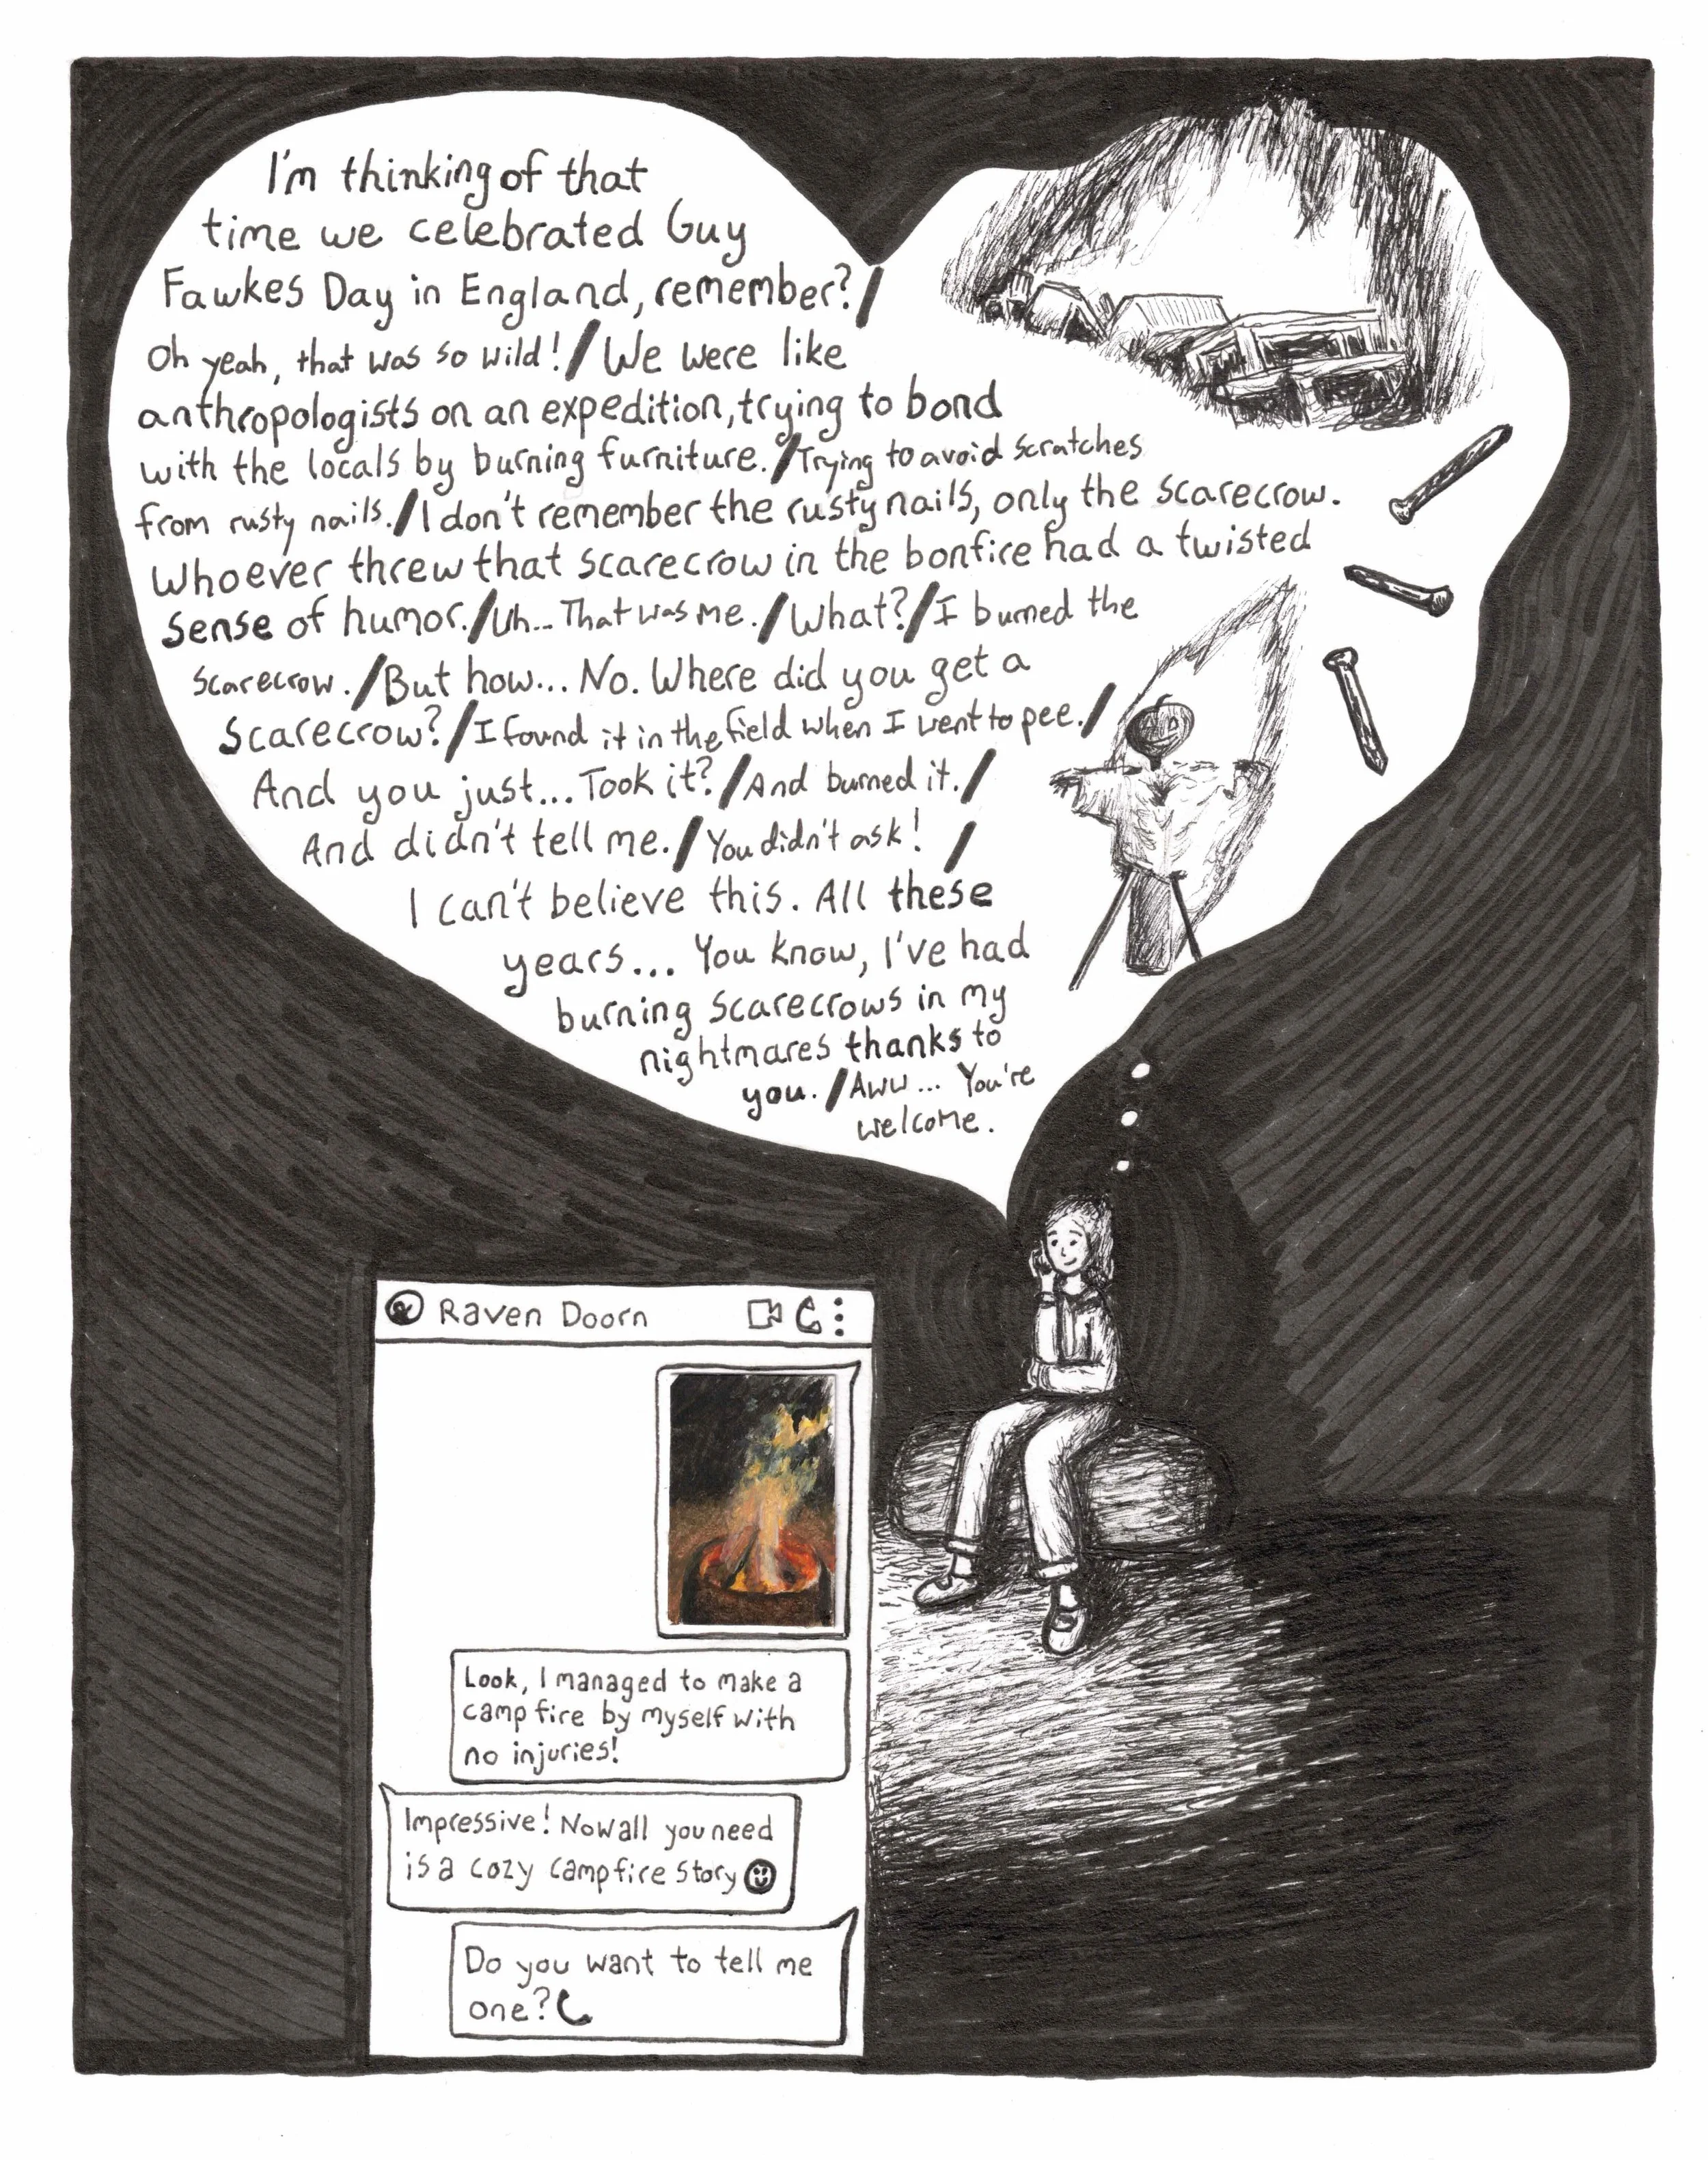 I'm thinking of that
time we celebrated Guy
Fawkes Day in England, remember?/
Oh yeah, that was so wild!/We were like
anthropologists on an expedition, trying to bond
with the locals by burning furniture./Trying to avoid scratches
from rusty nails./I don't remember the rusty nails, only the scarecrow.
Whoever threw that scarecrow in the bonfire had a twisted
sense of humor./Uh... That was me./What?/I burned the
scarecrow./But how... No. Where did you get a
scarecrow?/I found it in the field when I went to pee./
And you just... Took it?/And burned it./
And didn't tell me./You didn't ask!/
I can't believe this. All these
years... You know, I've had
burning scarecrows in my
nightmares thanks to
you./Aww... You're
welcome.
Raven Doorn
Look, I managed to make a
campfire by myself with
no injuries!
Impressive! Now all you need
is a cozy campfire story
Do you want to tell me
one?